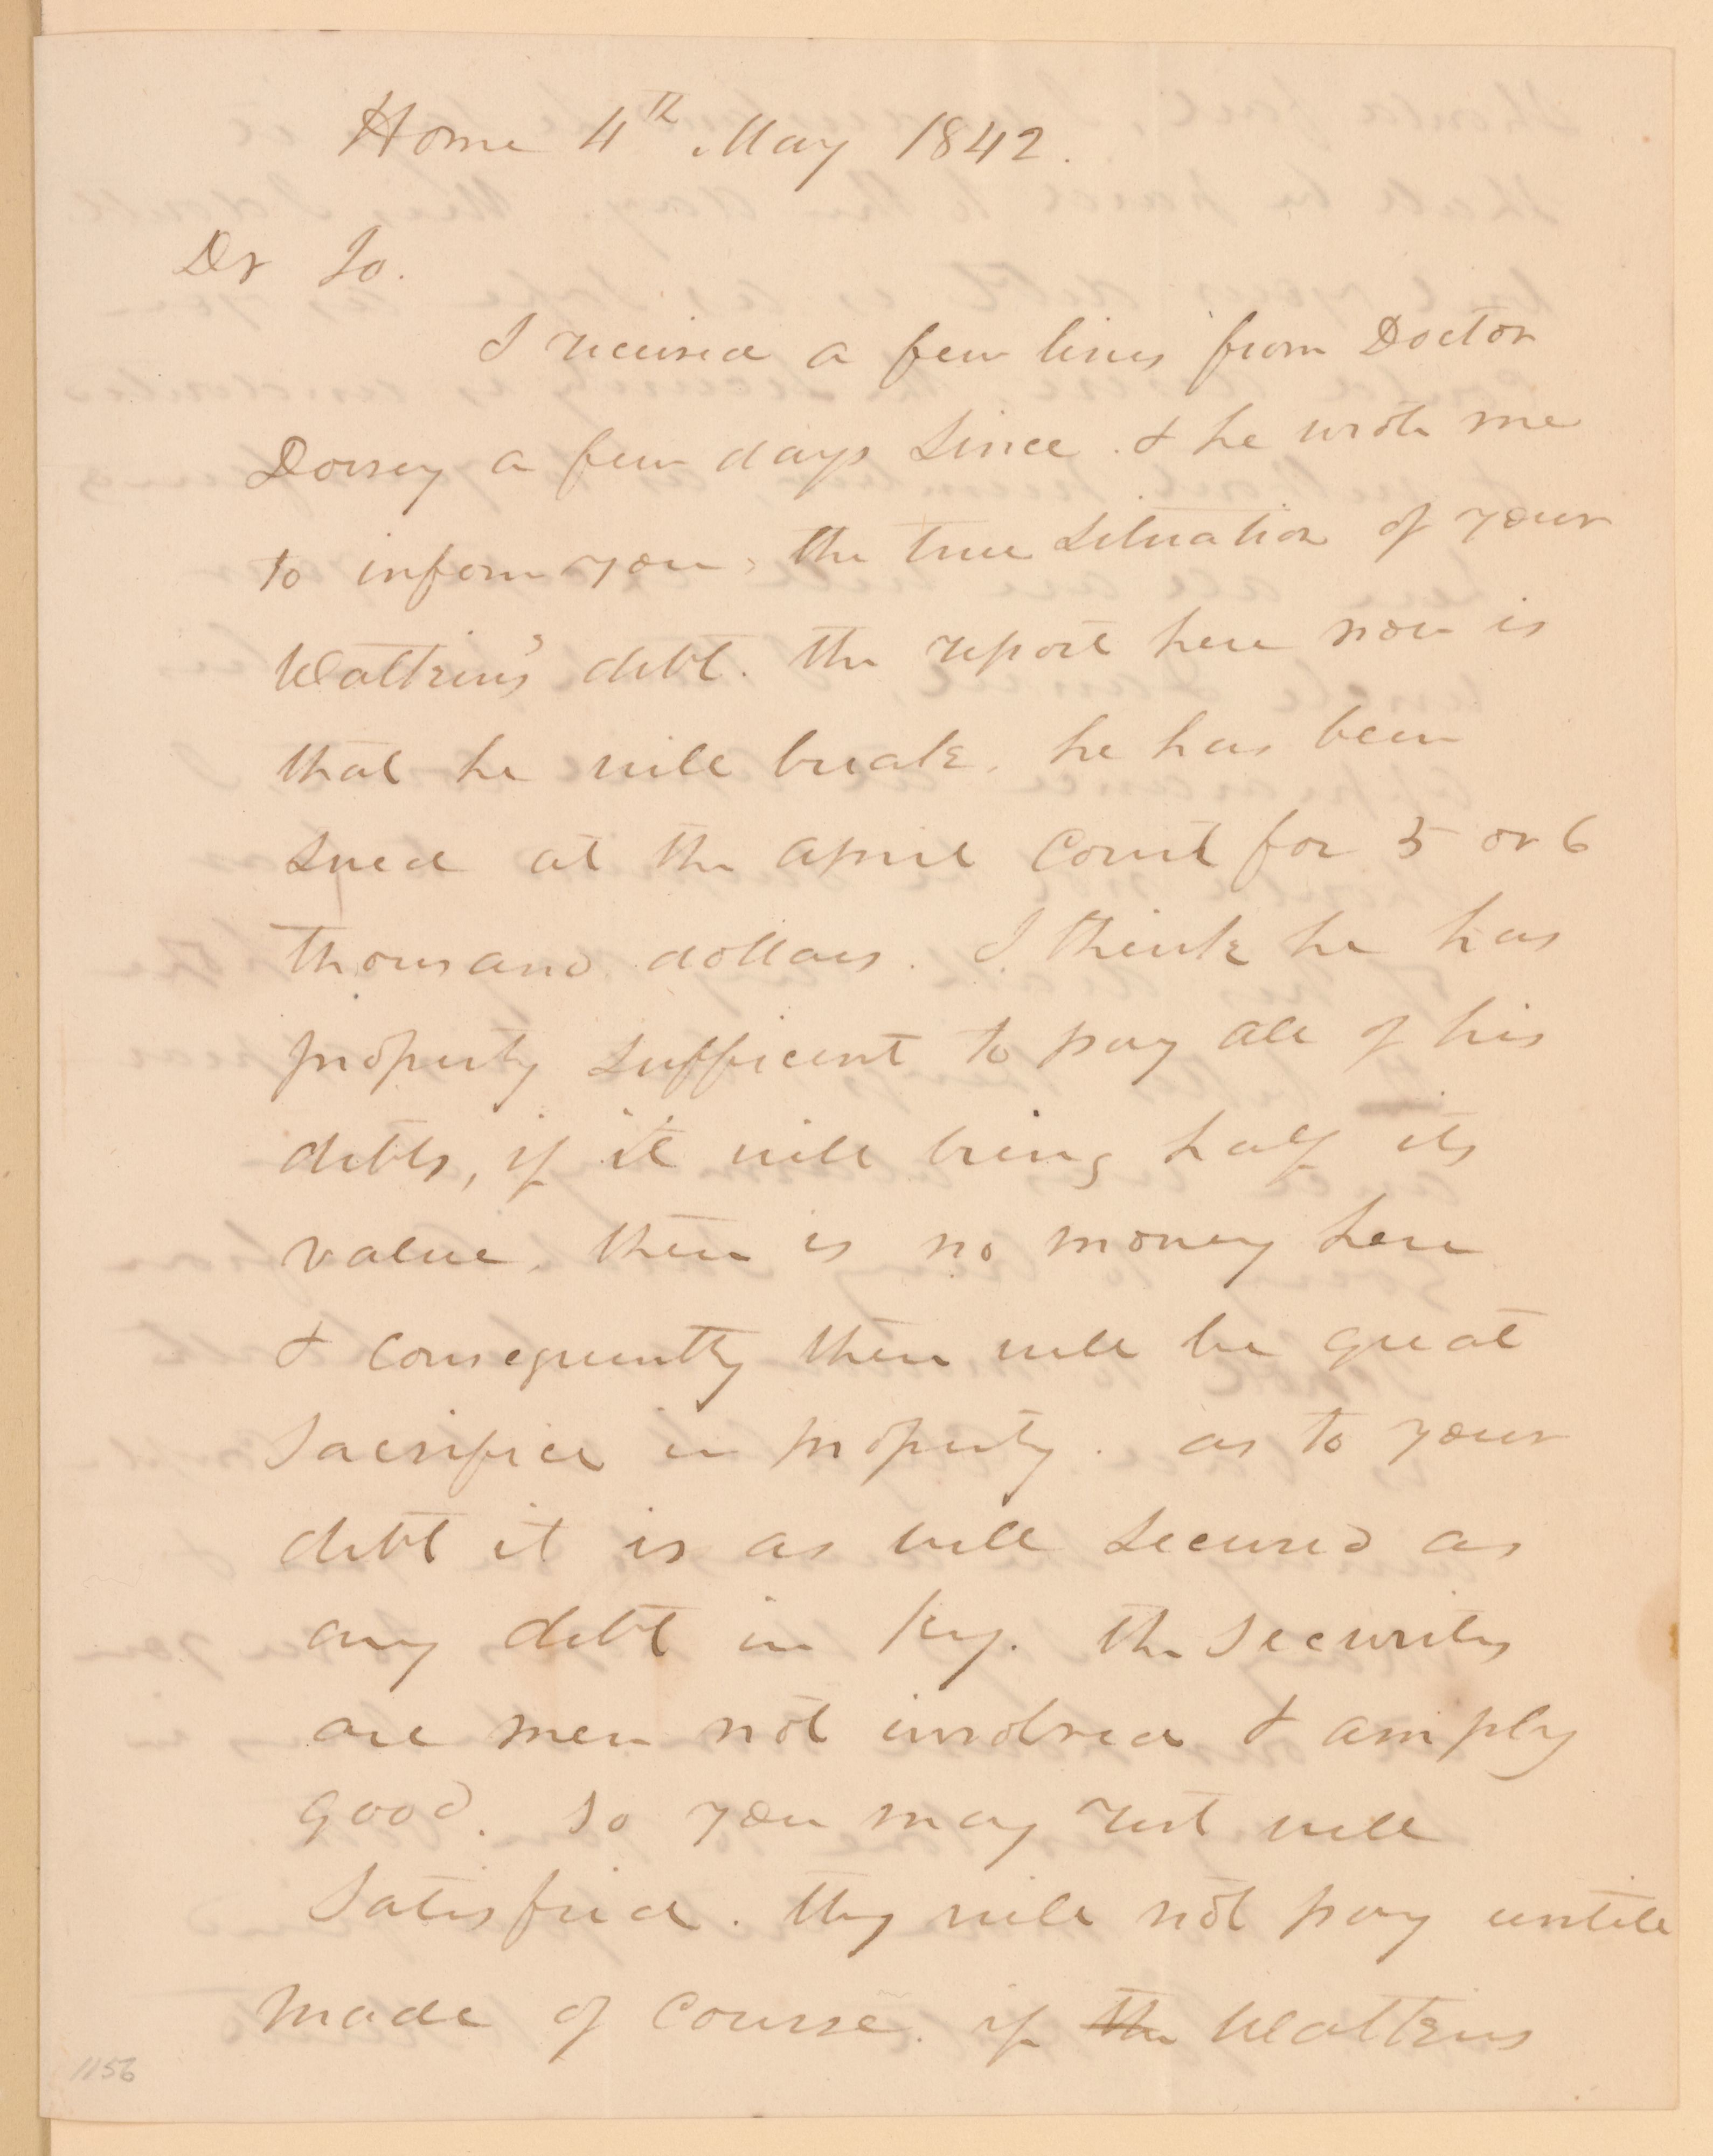 Home 4th May 1842.
Dr Jo.
I received a few lines from Doctor
Dorsey a few days since. & he wrote me
to inform you, the true situation of your
Watkins' debt. the report here now is
that he will break. he has been
sued at the april Court for 5 or 6
thousand dollars. I think he has
property sufficent to pay all of his
debts, if it will bring half its
value. there is no money here
& consequently there will be great
Sacrifice in property. as to your
debt it is as well secured as
any debt in Ky. the Securitys
are men not involved & amply
good. so you may rest well
Satisfied. they will not pay untill
made of Course. if the Watkins
1156